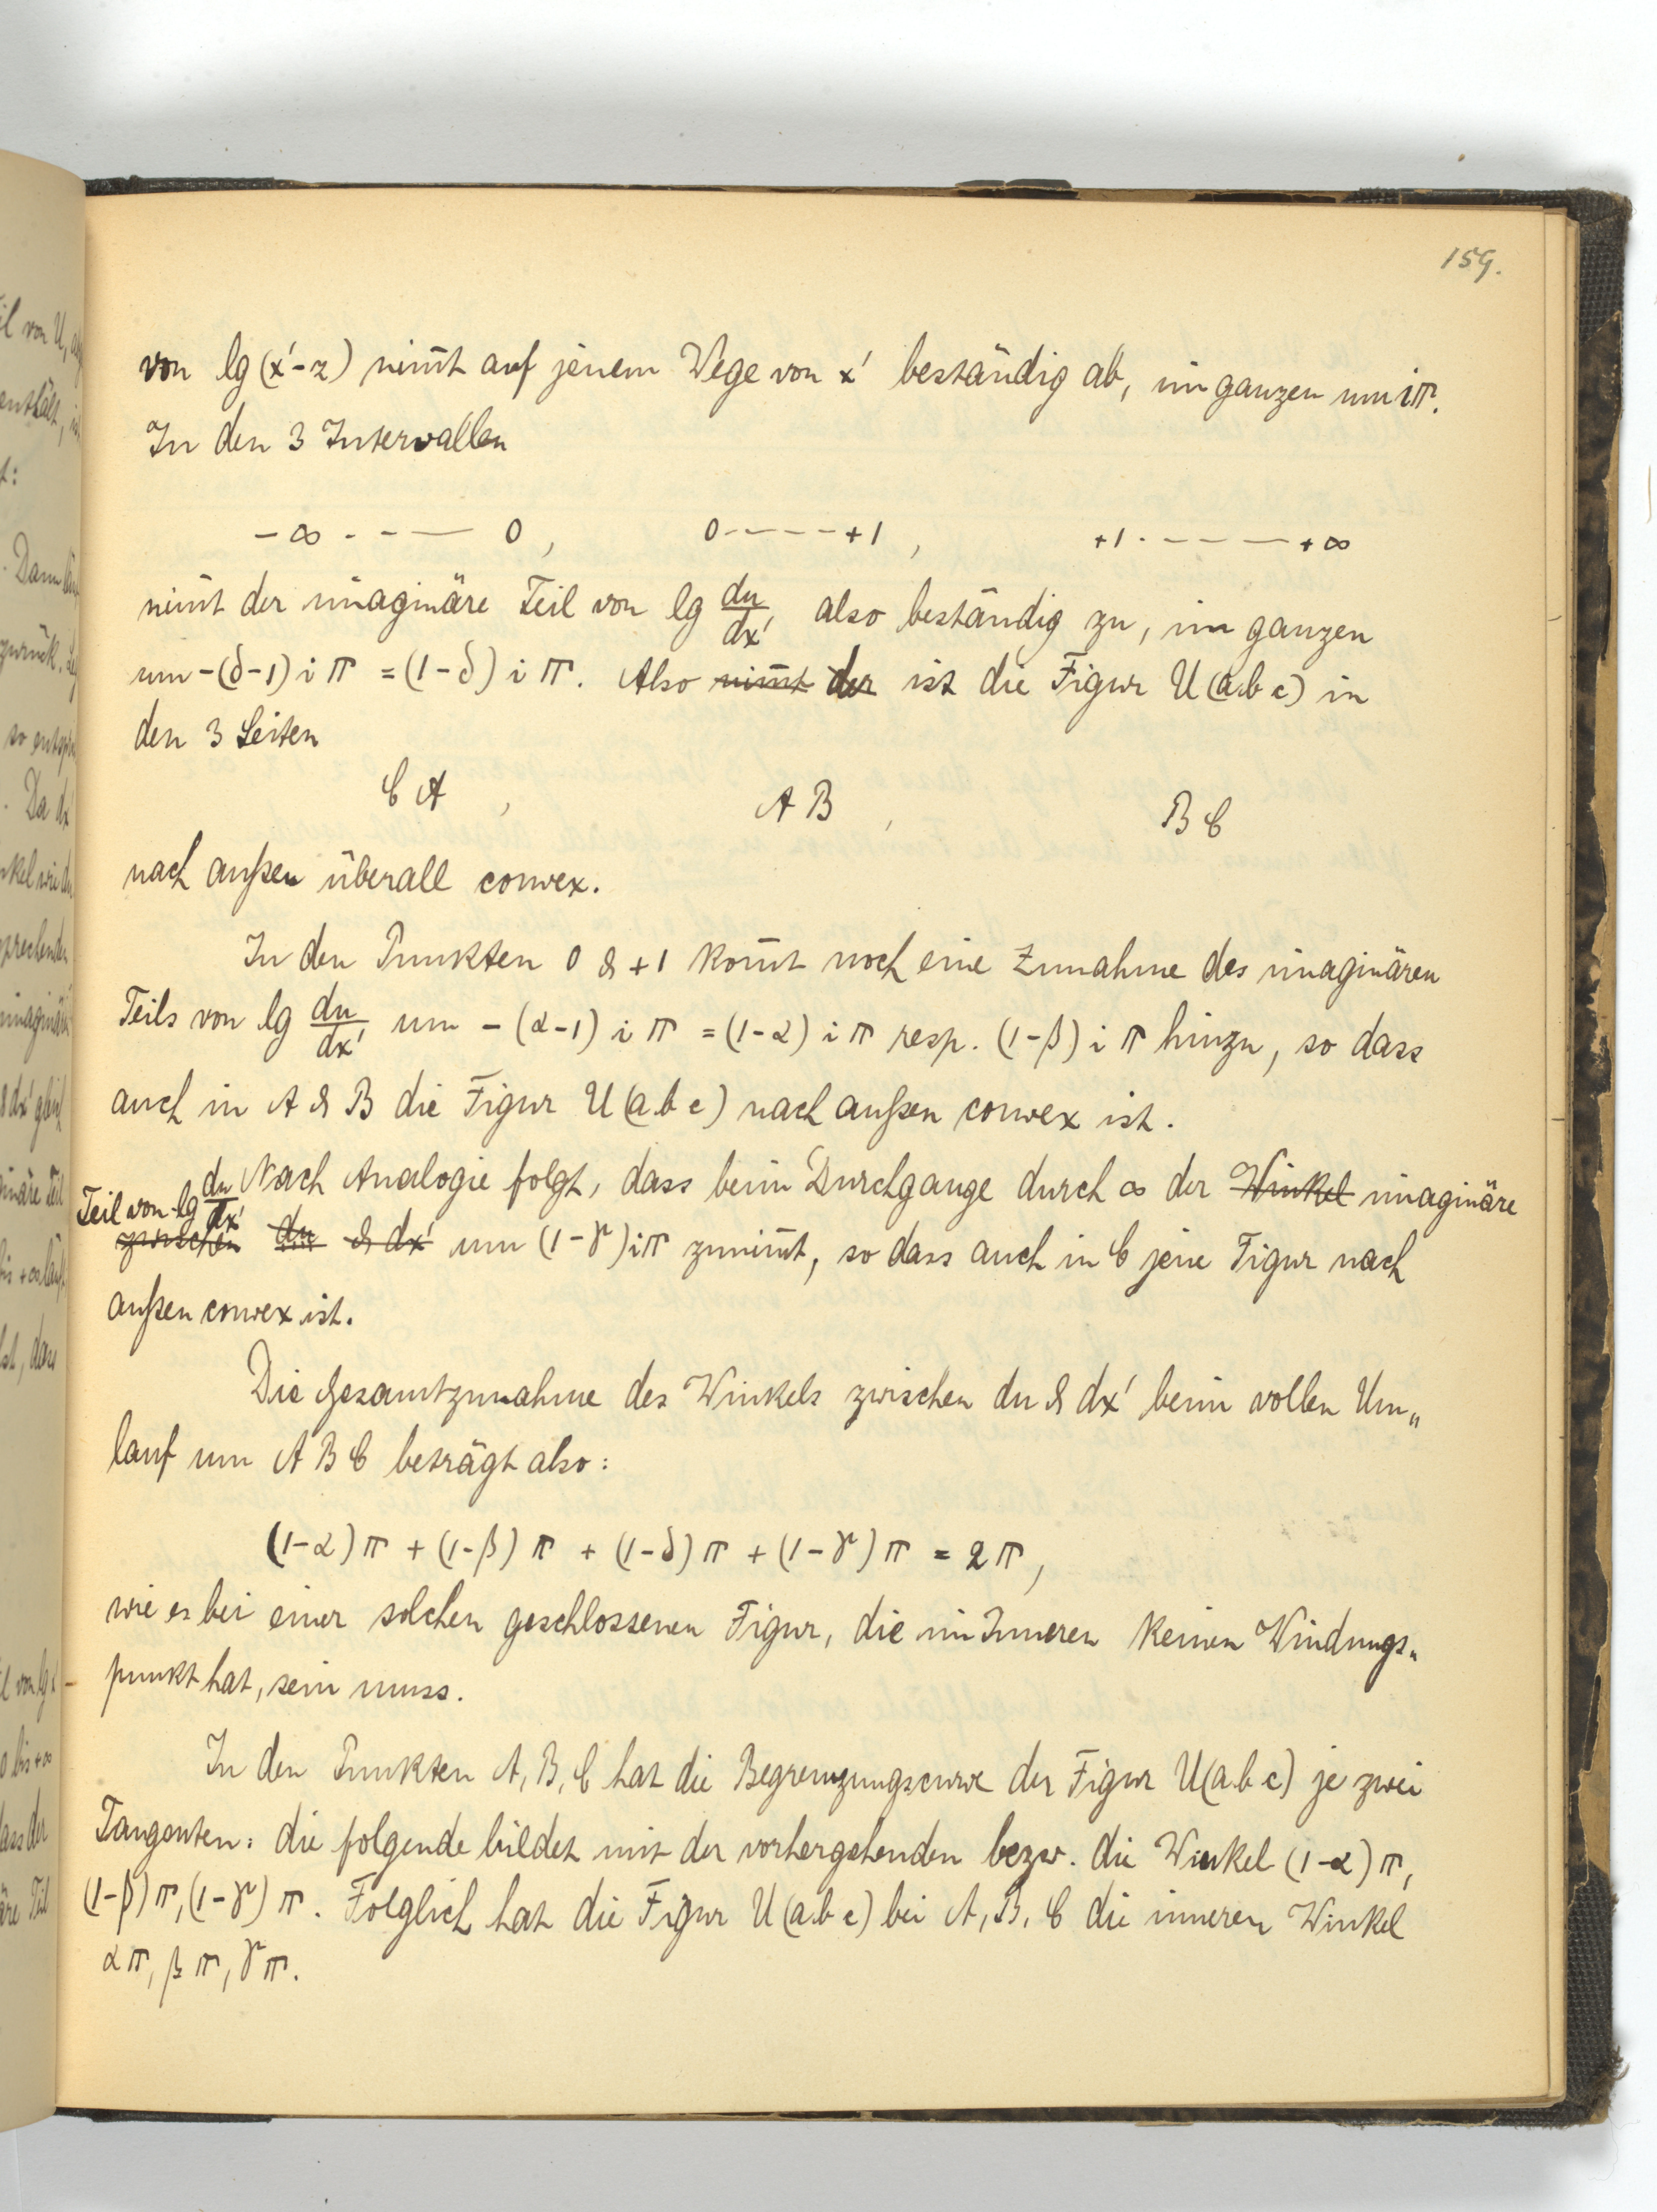 159.
von lg (x'-z) nim̅t auf jenem Wege von x' beständig ab, im ganzen um iπ.
In den 3 Intervallen
-∞ - - — 0 , 0 - - - - +1 , +1 - - - - +∞
nim̅t der imaginäre Teil von lg du/dx' also beständig zu, im ganzen
um -(δ-1) i π = (1-δ) i π. Also nim̅t der ist die Figur U(a b c) in
den 3 Seiten
C A , A B , B C
nach außen überall convex.
In den Punkten 0 & +1 kom̅t noch eine Zunahme des imaginären
Teils von lg du/dx' um - (α-1) i π = (1-α) i π resp. (1-β) i π hinzu, so dass
auch in A & B die Figur U(a b c) nach außen convex ist.
Nach Analogie folgt, dass beim Durchgange durch ∞ der Winkel imaginäre
Teil von lg du/dx'
zwischen du & dx' um (1-γ) i π zunim̅t, so dass auch in C jene Figur nach
außen convex ist.
Die Gesamtzunahme des Winkels zwischen du & dx' beim vollen Um„
lauf um A B C beträgt also:
(1-α) π + (1-β) π + (1-δ) π + (1-γ) π = 2 π,
wie es bei einer solchen geschlossenen Figur, die im Inneren keinen Windungs„
punkt hat, sein muss.
In den Punkten A, B, C hat die Begrenzungscurve der Figur U(a b c) je zwei
Tangenten: die folgende bildet mit der vorhergehenden bezw. die Winkel (1-α) π,
(1-β) π, (1-γ) π. Folglich hat die Figur U(a b c) bei A, B, C die inneren Winkel
α π, β π, γ π.